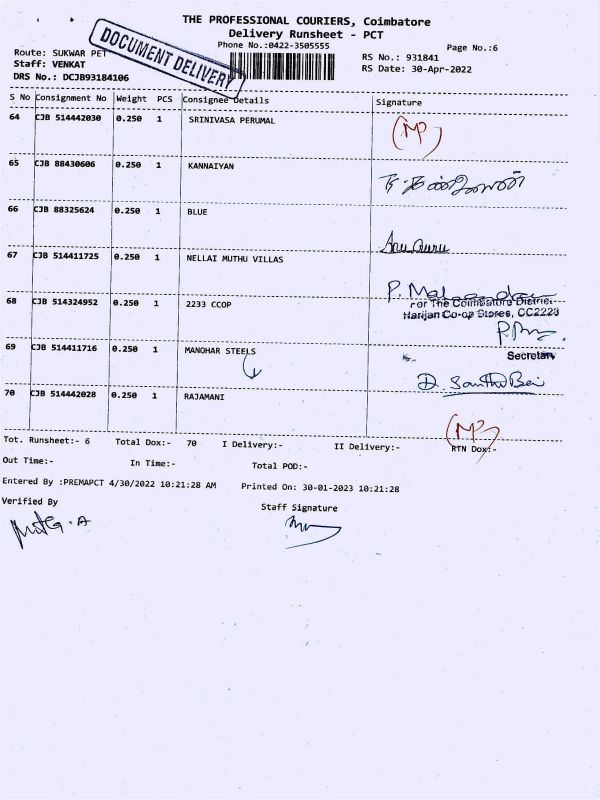 THE PROFESSIONAL COURIERS, Coimbatore
Delivery Runsheet - PCT
Phone No.:0422-3505555
Page No.:6
DOCUMENT DELIVERY
Route: SUKWAR PET
Staff: VENKAT
DRS No.: DCJB93184106
RS No.: 931841
RS Date: 30-Apr-2022
S No Consignment No Weight PCS Consignee Details Signature
64 CJB 514442030 0.250 1 SRINIVASA PERUMAL
65 CJB 88430606 0.250 1 KANNAIYAN
66 CJB 88325624 0.250 1 BLUE
Anu Guru
67 CJB 514411725 0.250 1 NELLAI MUTHU VILLAS
68 CJB 514324952 0.250 1 2233 CCOP
For The Coimbatore District
Harijan Co-op Stores, CC2223
69 CJB 514411716 0.250 1 MANOHAR STEELS
Secretary
70 CJB 514442028 0.250 1 RAJAMANI
Tot. Runsheet:- 6 Total Dox:- 70 I Delivery:- II Delivery:- RTN Dox:-
Out Time:- In Time:- Total POD:-
Entered By :PREMAPCT 4/30/2022 10:21:28 AM Printed On: 30-01-2023 10:21:28
Verified By Staff Signature